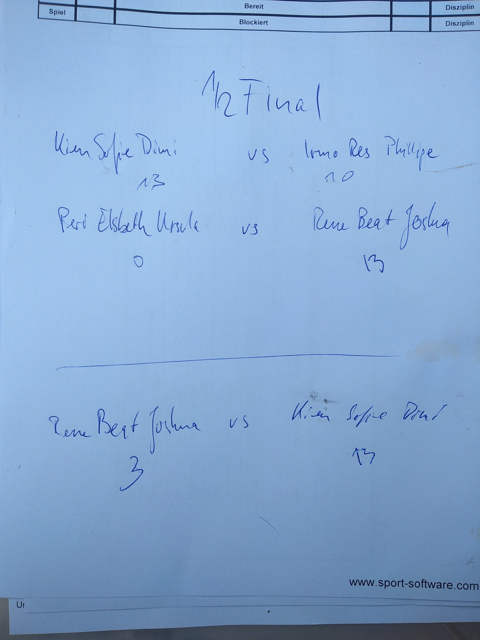 Bereit Disziplin
Spiel
Blockiert Disziplin
1/2 Final
Kien Sofie Dimi vs Irmo Res Phillipe
13 10
Peri Elsbeth Ursula vs Rene Beat Joshua
0 13
Rene Beat Joshua vs Kien Sofie Dimi
3 13
www.sport-software.com
Ur